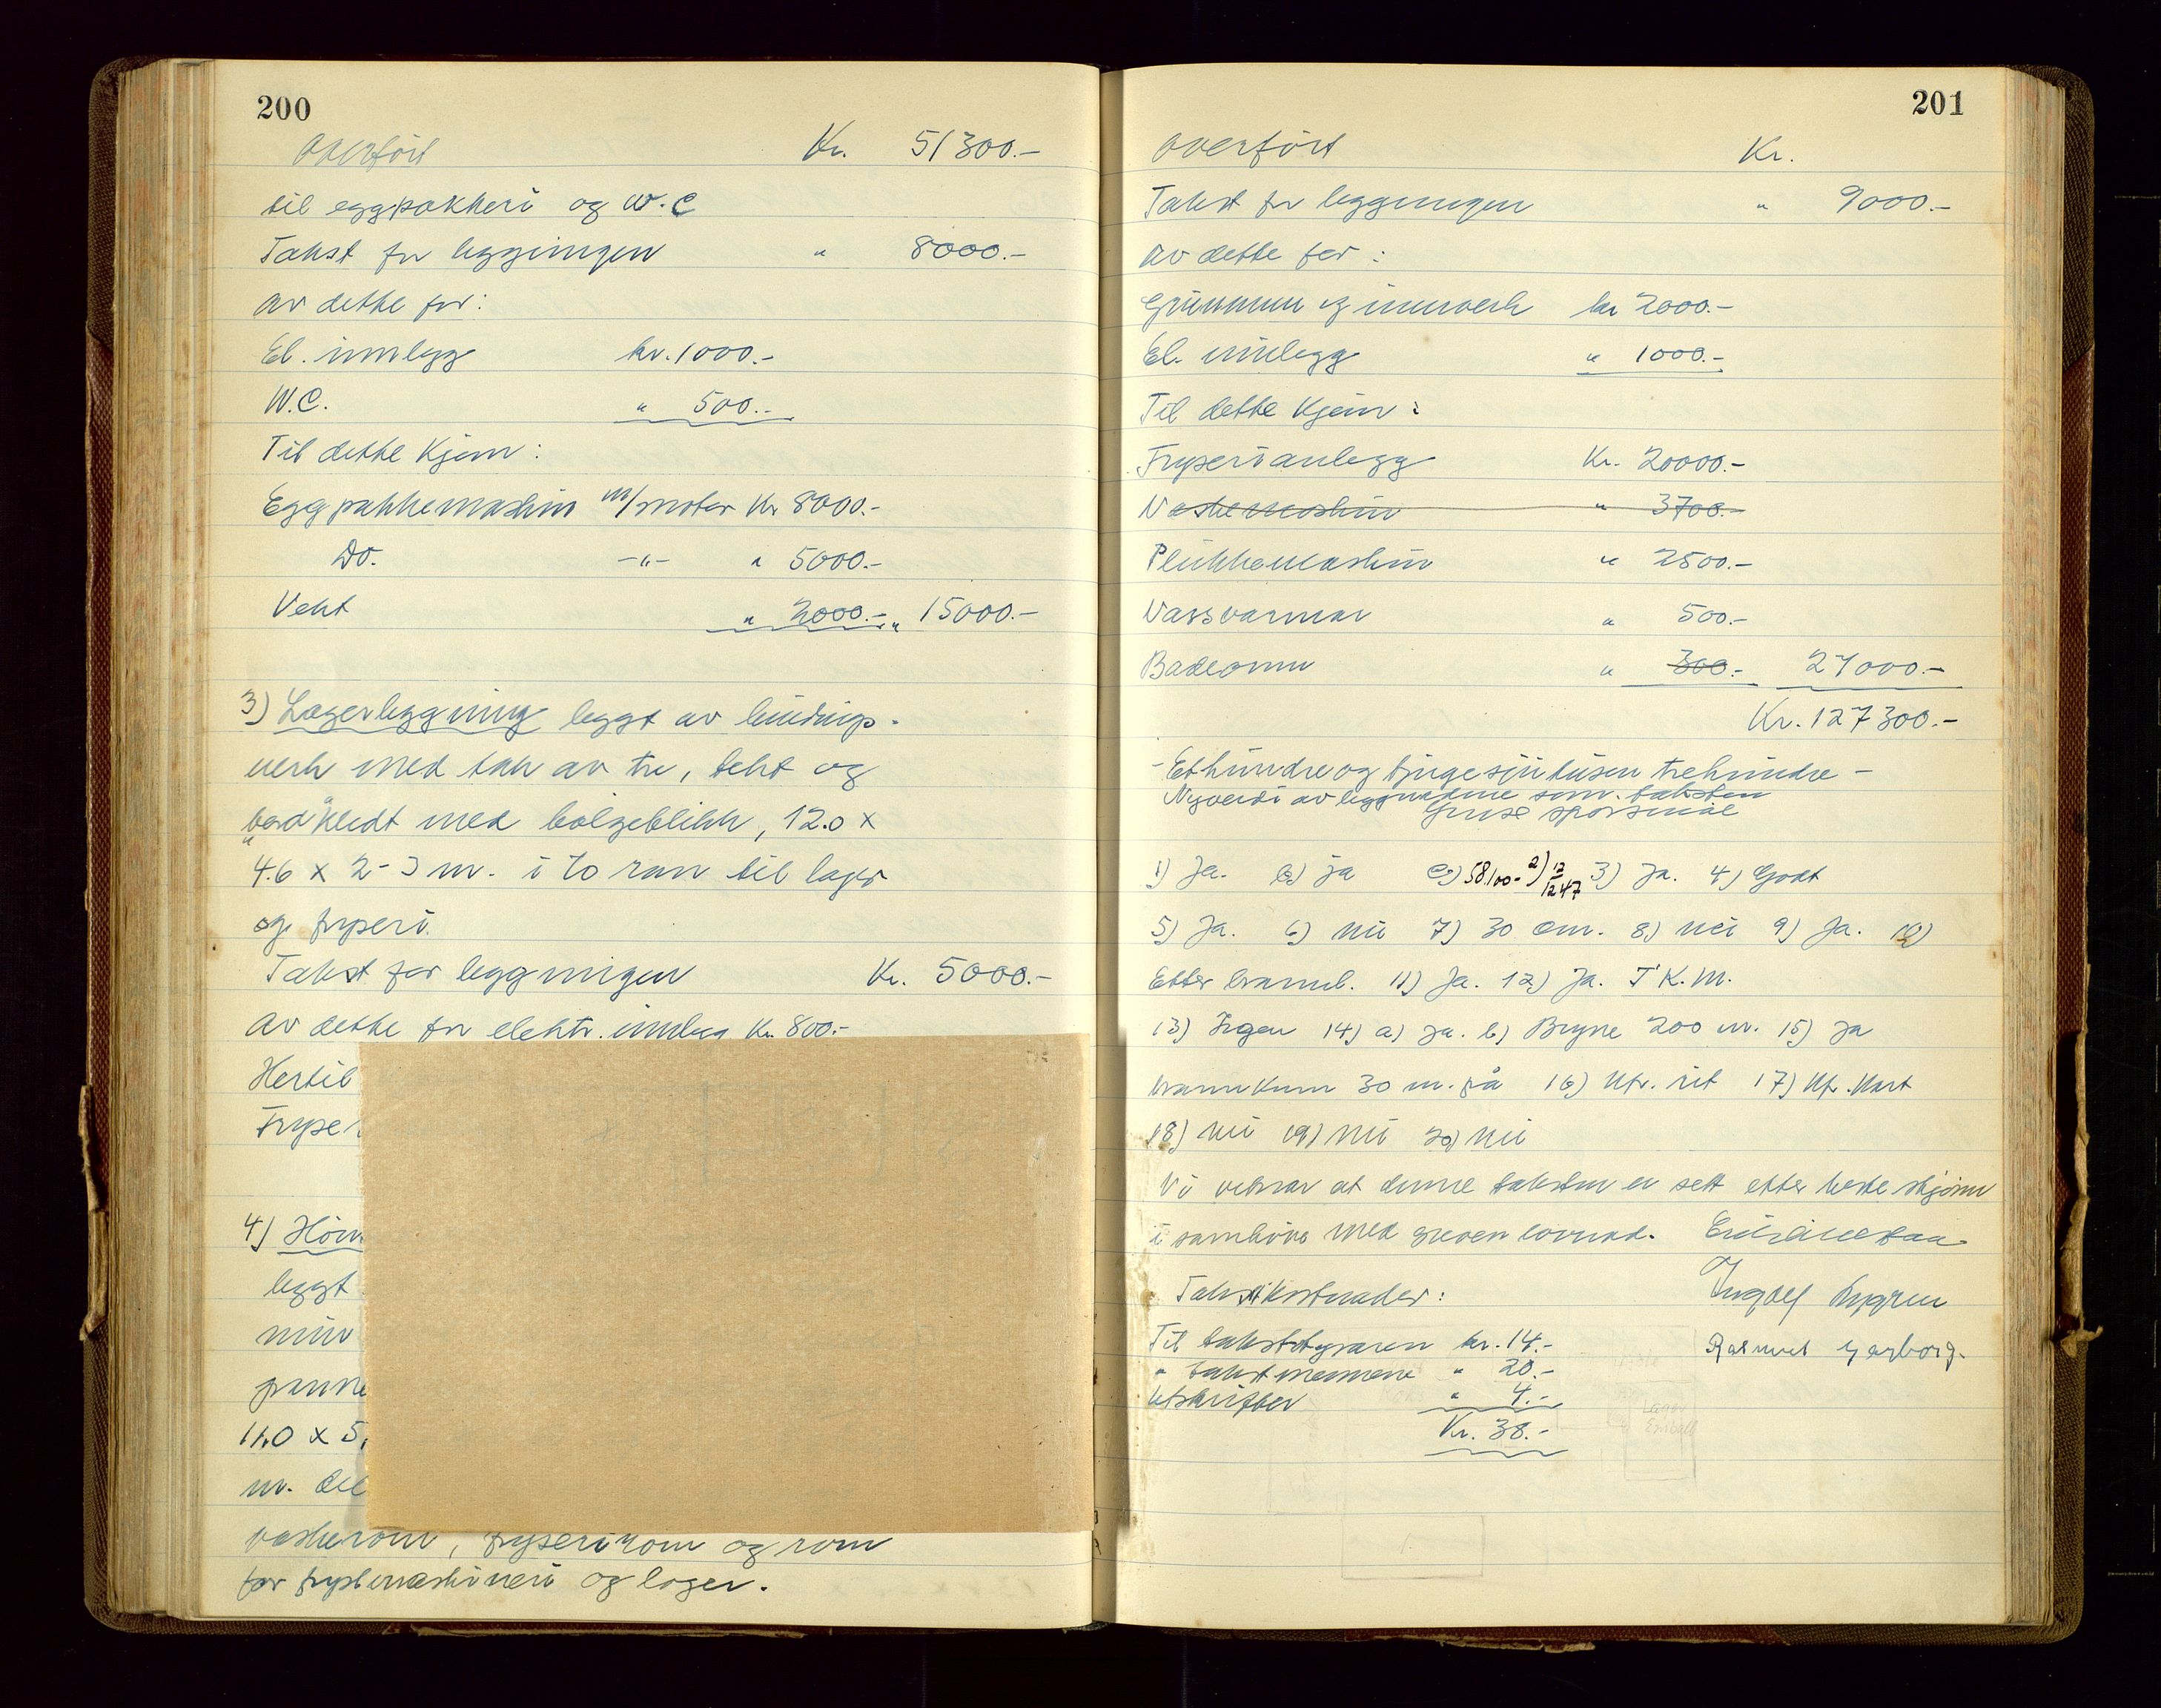 200
Overført Kr. 51300.-
til eggpakkeri og W.C
Takst for byggningen " 8000.-
av dette for:
El. innlegg kr. 1000.-
W.C. " 500.-
Til dette kjem:
Eggpakkemaskin m/motor Kr 8000.-
Do. -"- " 5000.-
Vekt " 2000.- " 15000.-
3) Lagerbyggning bygt av bindings-
verk med tak av tre, tekt og
bordkledt med bølgeblikk, 12.0 x
4.6 x 2-3 m. i to rom til lager
og fryseri.
Takst for byggningen Kr. 5000.-
Av dette for elektr. innlegg Kr. 800.-
Hertil
Fryseri
4) Høns
bygt
min
panne
11.0 x 5,
m. del
vaskerom, fryserirom og rom
for frysemaskineri og lager.
201
Overført Kr.
Takst for byggningen " 9000.-
Av dette for:
Grunnmur og murverk kr 2000.-
El. innlegg " 1000.-
Til dette kjem:
Fryserianlegg Kr. 20000.-
Vaskemaskin " 3700.-
Plukkemaskin " 2500.-
Vassvarmar " 500.-
Badeomn " 300.- 27000.-
Kr. 127300.-
- Ethundreogtjugesjutusen trehundre -
Nyverdi av byggnadene som taksten
Ymse spørsmål
1) Ja. b) ja c) 58.100- 2) 12/12 47 3) Ja. 4) Godt
5) Ja. 6) nei 7) 30 cm. 8) nei 9) Ja. 10)
Etter brannb. 11) Ja. 12) Ja. I K.M.
13) Ingen 14) a) ja. b) Bryne 200 m. 15) Ja
brannkum 30 m. frå 16) Upr. rit 17) Upr. kart
18) nei 19) nei 20) nei
Vi vitnar at denne taksten er sett etter beste skjønn
i samhøve med greven lovnad.
Takstkostnader: Ingolf Rygren
Til takststyraren kr. 14.- Rasmus Garborg.
" takstmennene " 20.-
Utskrifter " 4.-
Kr. 38.-